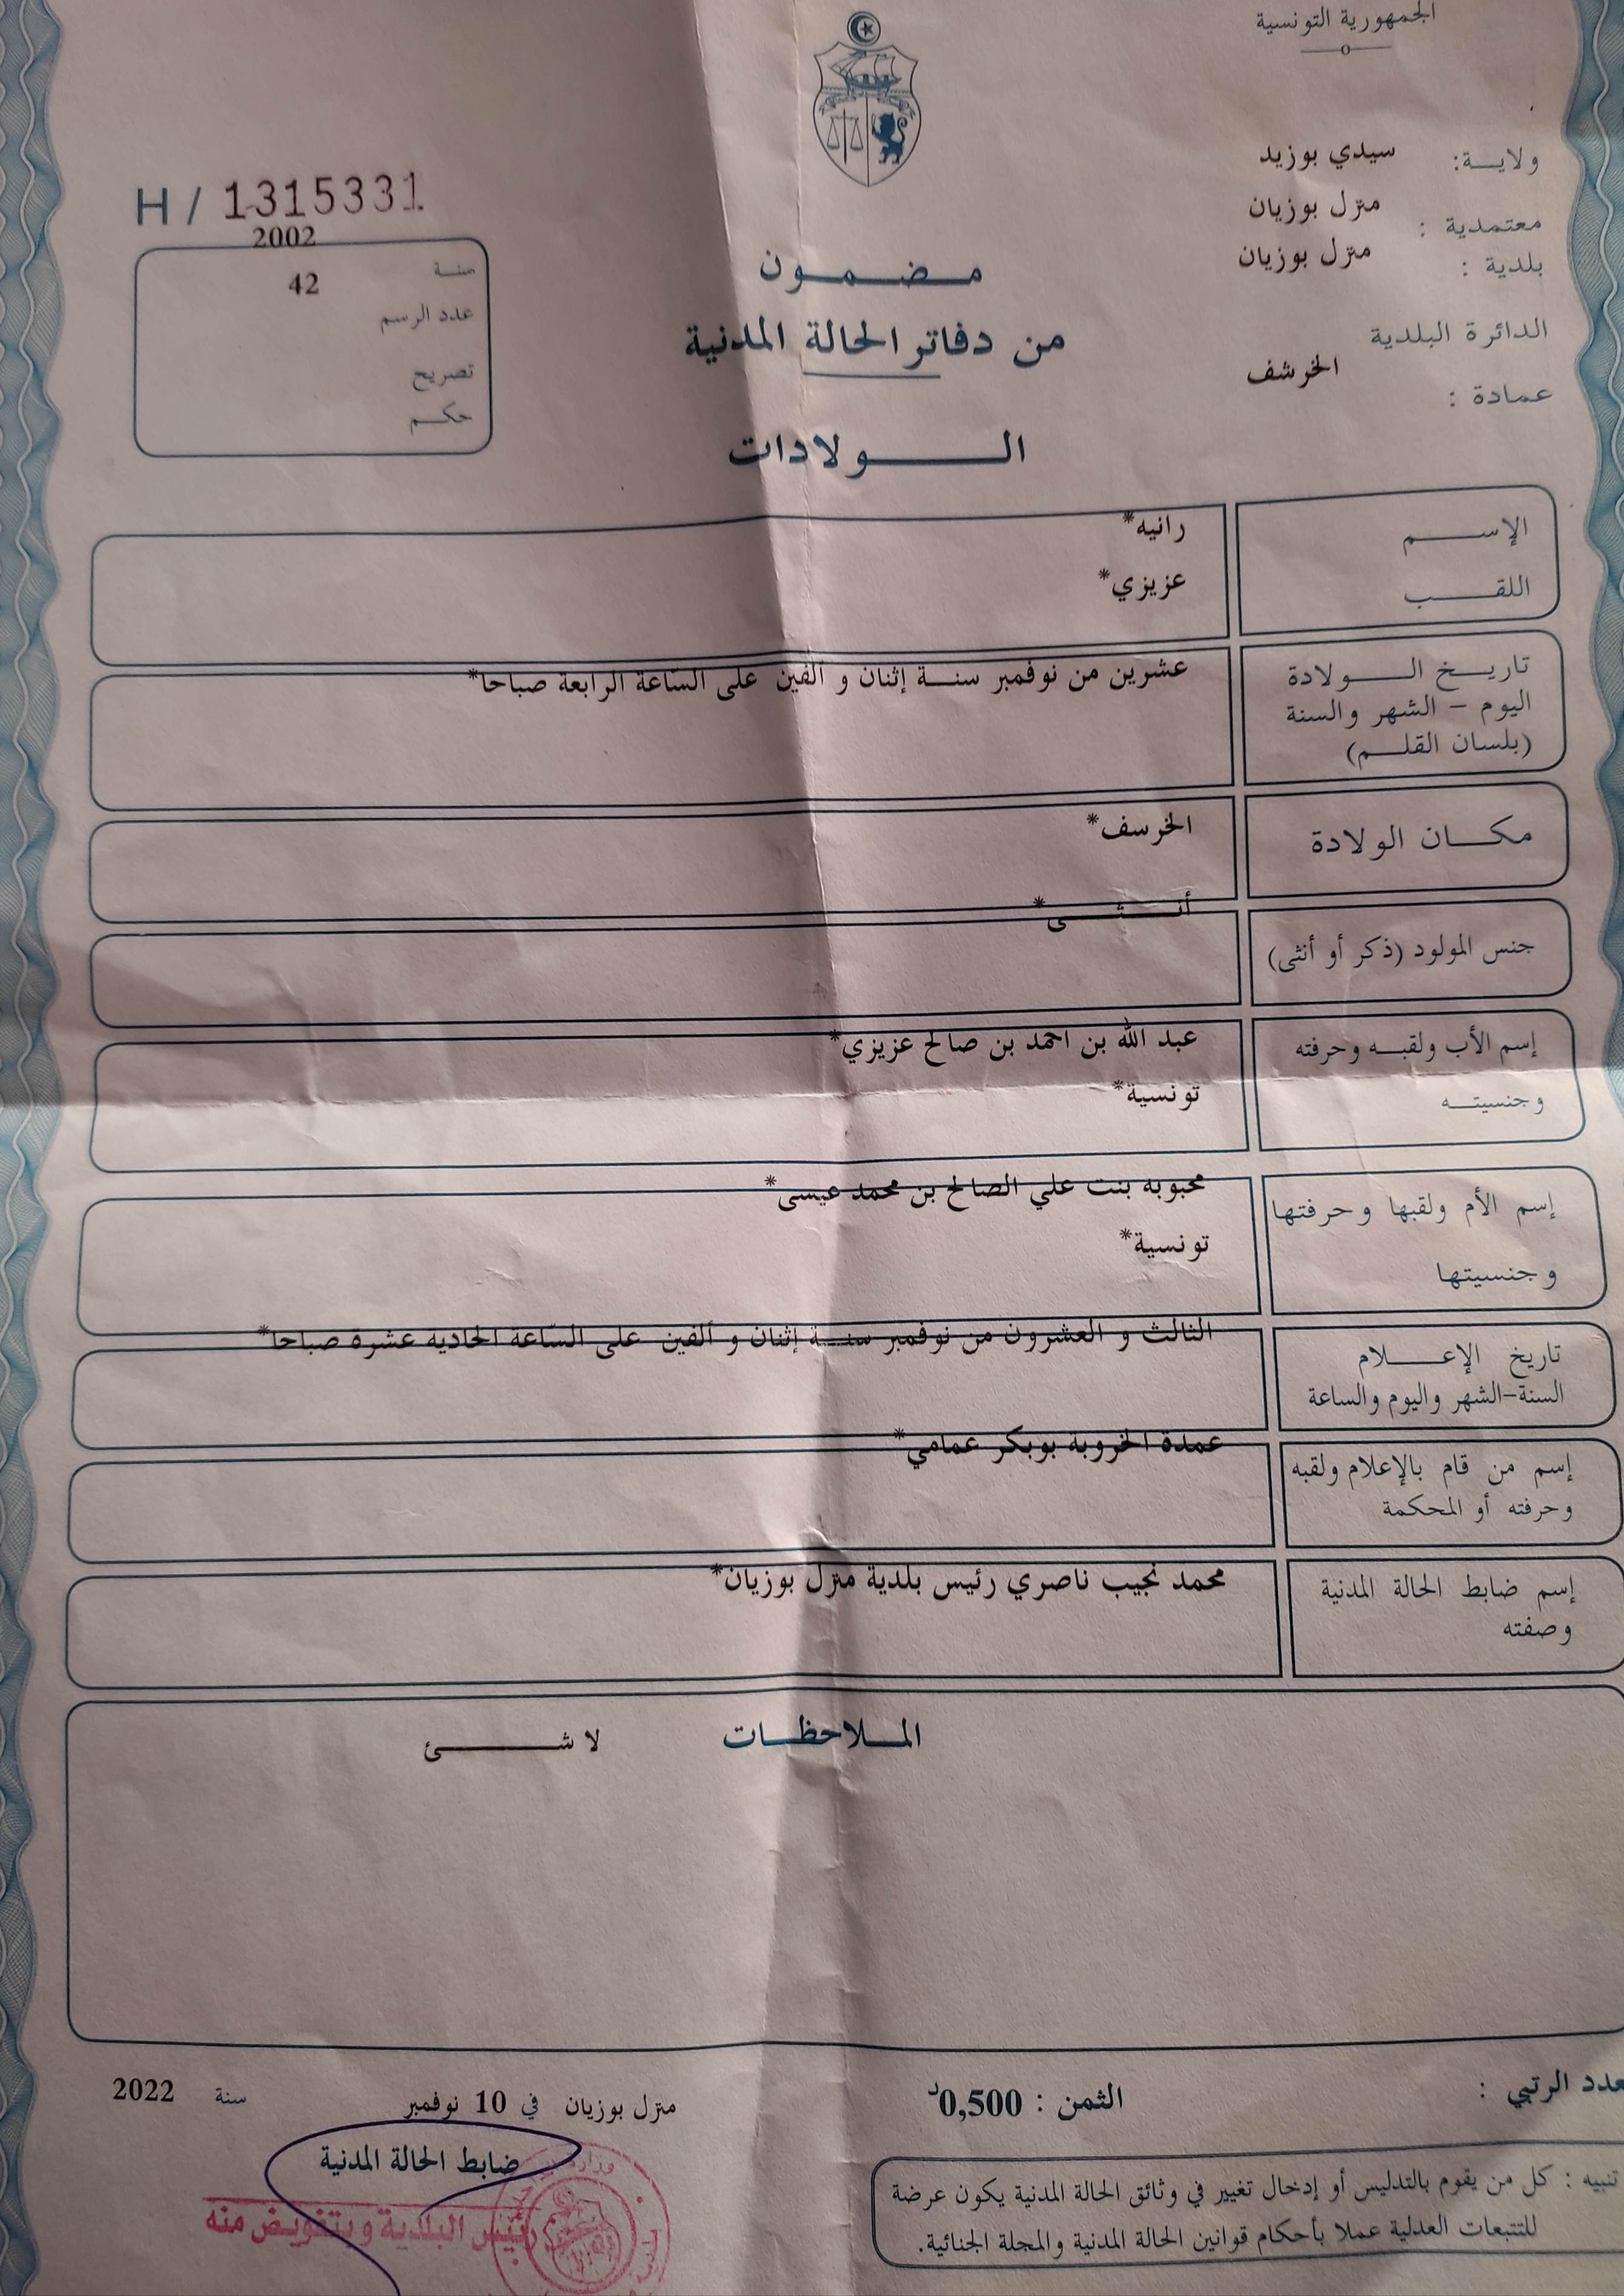 الجمهورية التونسية
ولايـــة: سيدي بوزيد
معتمدية : منزل بوزيان
بلدية : منزل بوزيان
الدائرة البلدية
عمادة : الخرشف
H / 1315331
سنة 2002
عدد الرسم 42
تصريح
حكم
مضمون
من دفاتر الحالة المدنية
الولادات
الإسم رانيه*
اللقب عزيزي*
تاريخ الولادة عشرين من نوفمبر سنة إثنان و ألفين على السّاعة الرابعة صباحا*
اليوم - الشهر والسنة
(بلسان القلم)
مكان الولادة الخرسف*
جنس المولود (ذكر أو أنثى) أنثى*
إسم الأب ولقبه وحرفته عبد الله بن احمد بن صالح عزيزي*
وجنسيته تونسية*
إسم الأم ولقبها وحرفتها محبوبه بنت علي الصالح بن محمد عيسى*
وجنسيتها تونسية*
تاريخ الإعلام الثالث و العشرون من نوفمبر سنة إثنان و ألفين على السّاعة الحادية عشرة صباحا*
السنة-الشهر واليوم والساعة
إسم من قام بالإعلام ولقبه عمدة الخروبة بوبكر عمامي*
وحرفته أو المحكمة
إسم ضابط الحالة المدنية محمد نجيب ناصري رئيس بلدية منزل بوزيان*
وصفته
الملاحظات لا شئ
عدد الرتبي :
الثمن : 0,500د
منزل بوزيان في 10 نوفمبر سنة 2022
ضابط الحالة المدنية
رئيس البلدية وبتفويض منه
تنبيه : كل من يقوم بالتدليس أو إدخال تغيير في وثائق الحالة المدنية يكون عرضة
للتتبعات العدلية عملا بأحكام قوانين الحالة المدنية والمجلة الجنائية.